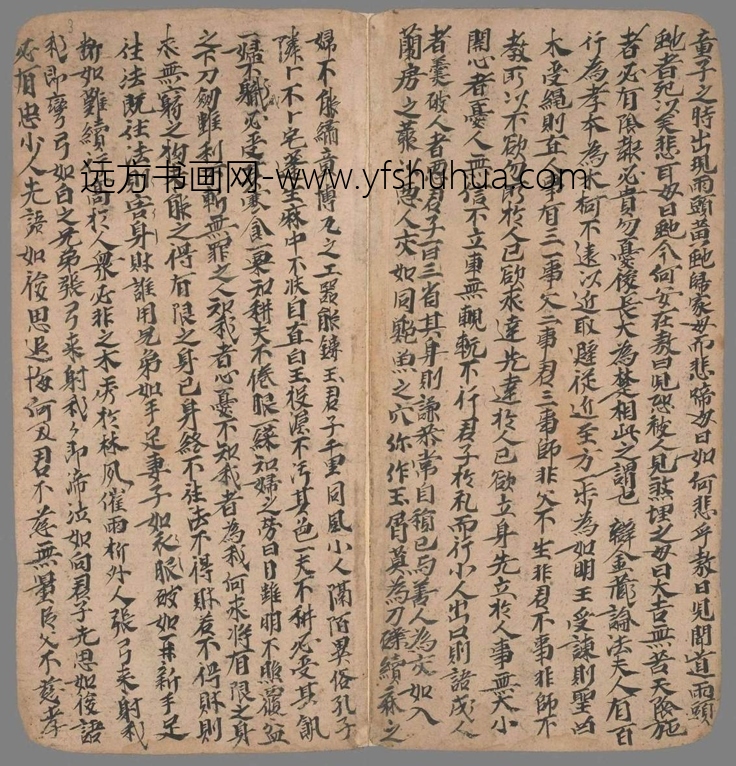 童子之時出現兩頭蛇歸家母而悲啼母曰如何悲乎敖曰見聞道兩頭
蛇者死以是悲耳母曰蛇今何安在敖曰見恐被人見煞埋之母曰大吉無苦天陰施
者必有陰報必貴勿憂後長大為楚相此之謂也 辯金藏論法夫人有百
行為孝本為木柯不遠以近取避從近至方一步為如明王受諫則聖
木受繩則直人事有三一事父二事君三事師非父不生非君不事非師不
教所以不欲勿所於人已欲求達先達於人已欲立身先立於人事無大小
開心者憂人無信不立車無輗軏不行君子於礼而行小人出口則語成人
者棄破人者西君子一日三省其身則謙恭常自稱已与善人為交如入
蘭房之藂沾惡人交如同鮑魚之穴弥作玉骨莫為刀礫續麻之
婦不能繡章博瓦之工器能鍊玉君子千里同風小人隔陌異俗孔子
隣卜不卜宅蓬生麻中不扶自直白玉投泥不汚其色一夫不耕必受其飢
一婦不職必受寒食一粟和耕夫不倦眼一絲知婦之勞日月雖明不照覆盆
之下刀劒雖利不斬無罪之人知我者心憂不知我者為我何求將有限之身
求無窮之物能之得有限之身已身終不往法不得財若不得財則
往法既往法則害身財誰用兄弟如手足妻子如衣服破如再新手足
断如難續高於人衆必非之木秀於林風催雨折外人張弓来射我
我即彎弓如白之兄弟張弓来射我々即渧泣如向君子先思如後語
必有忠小人先語如後思退悔何及君不慈無量臣父不慈孝
远方书画网-www.yfshuhua.com